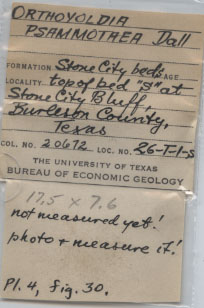 ORTHOYOLDIA
PSAMMOTAEA Dall
FORMATION Stone City beds AGE
LOCALITY top of bed "S" at
Stone City Bluff,
Burleson County,
Texas
COL. NO. 20672 LOC. NO. 26-T-1-S
THE UNIVERSITY OF TEXAS
BUREAU OF ECONOMIC GEOLOGY
17.5 x 7.6
not measured yet!
photo + measure it!
Pl. 4, fig. 30.